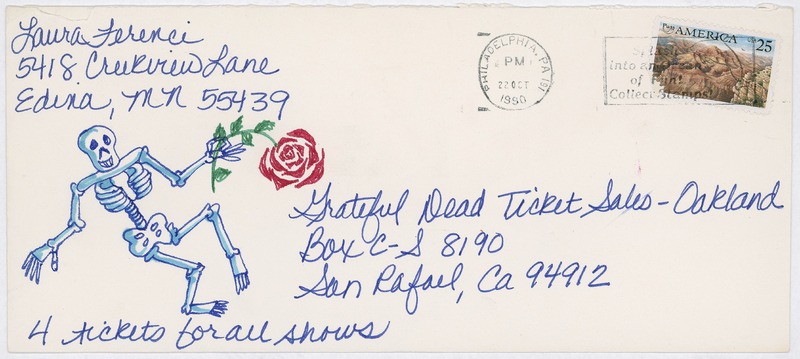 Laura Ferenci
5418 Creekview Lane
Edina, MN 55439
PHILADELPHIA, PA 191
PM
22 OCT
1990
Splash
into an Ocean
of Fun!
Collect Stamps!
AMERICA
25
Grateful Dead Ticket Sales - Oakland
Box C-S 8190
San Rafael, Ca 94912
4 tickets for all shows